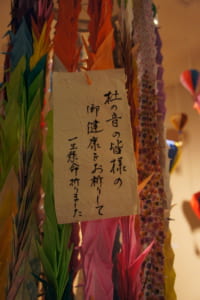 杜の音の皆様の
御健康をお祈りして
一生懸命祈りました